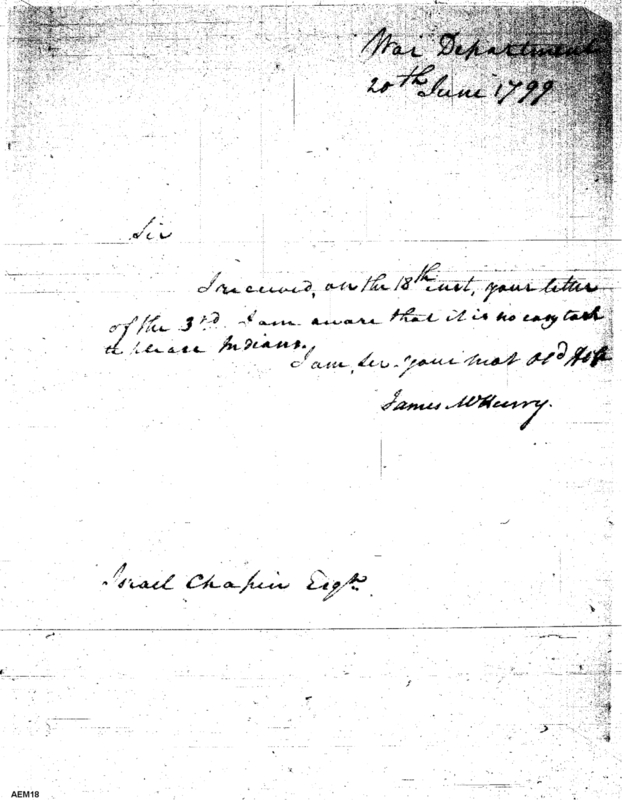 War Department
20th June 1799
Sir
I received, on the 18th inst, your letter
of the 3rd. I am aware that it is no easy task
to please Indians.
I am, Sir, your most obd
James McHenry.
Israel Chapin Esqr.
AEM18